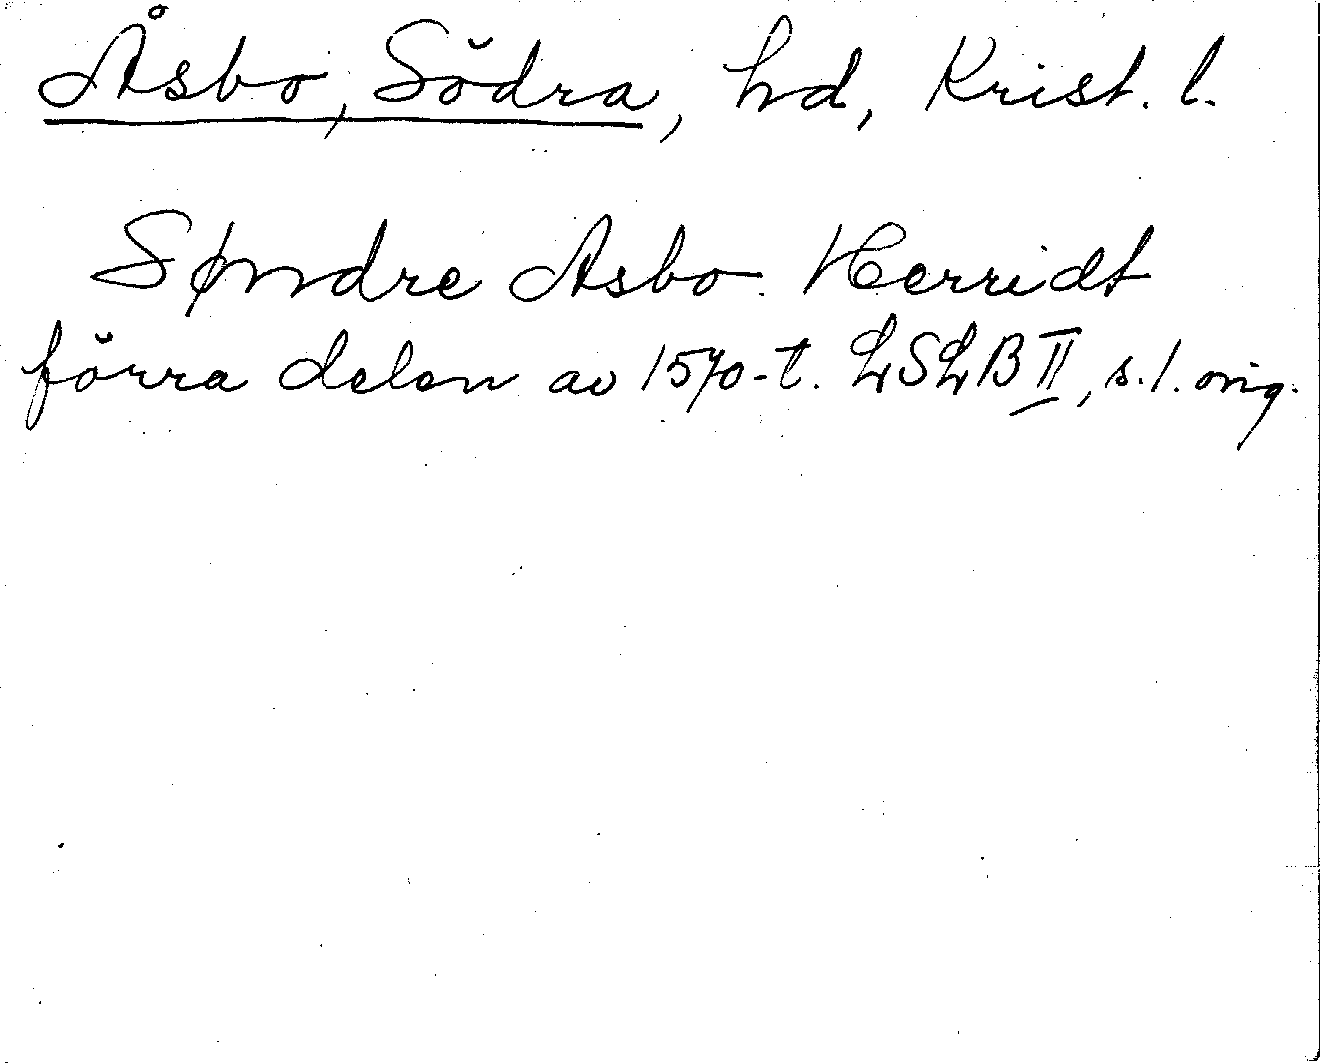 Åsbo, Södra, hd, Krist. l.
Søndre Asbo Herridt
förra delen av 1570-t. LSLB II, s. 1. orig.